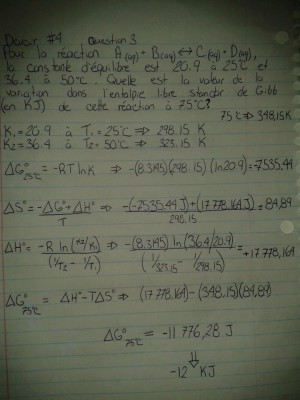 Devoir #4 Question 3
Pour la réaction A(aq) + B(aq) ↔ C(aq) + D(aq),
la constante d'équilibre est 20.9 à 25°C et
36.4 à 50°C. Quelle est la valeur de la
variation dans l'entalpie libre standar de Gibb
(en KJ) de cette réaction à 75°C?
75°C ⇒ 348.15K
K₁ = 20.9 à T₁ = 25°C ⇒ 298.15 K
K₂ = 36.4 à T₂ = 50°C ⇒ 323.15 K
ΔG°25°C = -RT ln K ⇒ -(8.3145)(298.15)(ln 20.9) = -7535.44
ΔS° = -ΔG° + ΔH° / T ⇒ -(-7535.44 J) + (17 778.164 J) / 298.15 = 84.89
ΔH° = -R ln (K2/K1) / (1/T2 - 1/T1) ⇒ -(8.3145) ln (36.4/20.9) / (1/323.15 - 1/298.15) = +17 778,164
ΔG°75°C = ΔH° - TΔS° ⇒ (17 778.164) - (348.15)(84.89)
ΔG°75°C = -11 776,28 J
⇓
-12 KJ